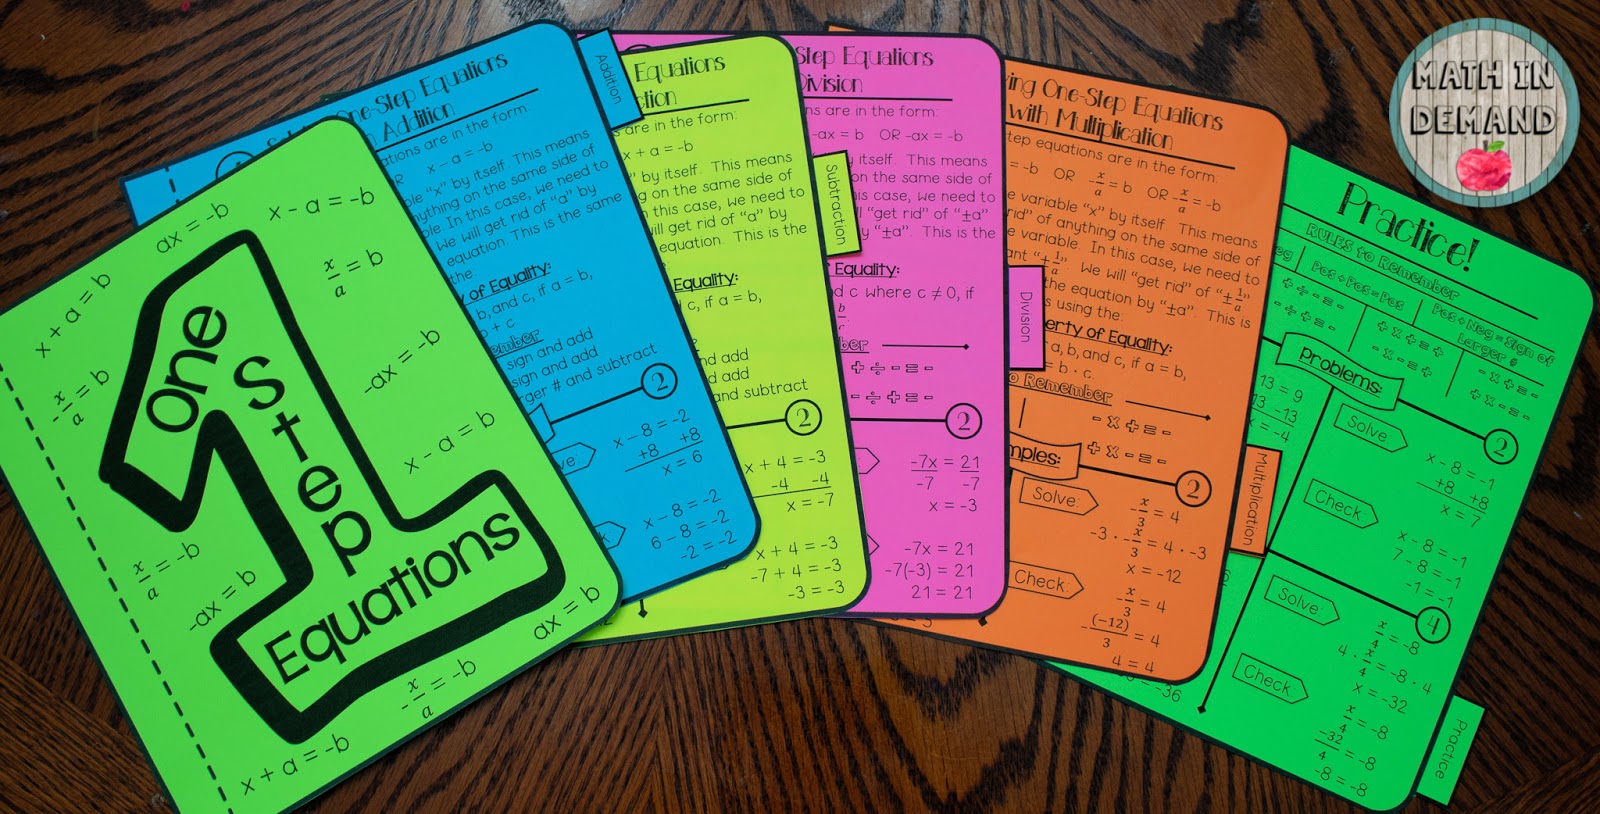 MATH IN
DEMAND
One
Step
Equations
ax = -b
x - a = -b
x + a = b
x/a = b
-x/a = b
-ax = -b
x - a = b
x/a = -b
-ax = b
ax = b
-x/a = -b
x + a = -b
One-Step Equations
Addition
Addition
are in the form:
x - a = -b
"x" by itself. This means
anything on the same side of
In this case, we need to
We will get rid of "a" by
equation. This is the same
the
of Equality:
b, and c, if a = b,
sign and add
sign and add
# and subtract
2
x - 8 = -2
+8 +8
x = 6
x - 8 = -2
6 - 8 = -2
-2 = -2
Equations
are in the form:
x + a = -b
by itself. This means
on the same side of
this case, we need to
will get rid of "a" by
equation. This is the
Subtraction
Equality:
and c, if a = b,
and add
and add
and subtract
2
x + 4 = -3
-4 -4
x = -7
x + 4 = -3
-7 + 4 = -3
-3 = -3
Step Equations
Division
are in the form:
-ax = b OR -ax = -b
by itself. This means
on the same side of
this case, we need to
"get rid" of "±a"
by "±a". This is the
Division
Equality:
and c where c ≠ 0, if
b/c
- + ÷ - = -
- ÷ + = -
2
-7x = 21
-7 -7
x = -3
-7x = 21
-7(-3) = 21
21 = 21
One-Step Equations
with Multiplication
step equations are in the form:
= -b OR -x/a = b OR -x/a = -b
variable "x" by itself. This means
rid" of anything on the same side of
the variable. In this case, we need to
"±1/a". We will "get rid" of "±1/a"
the equation by "±a". This is
using the:
Property of Equality:
a, b, and c, if a = b,
= b · c.
to Remember
- x + = -
+ x - = -
2
Solve:
-x/3 = 4
-3 · -x/3 = 4 · -3
x = -12
Check:
-x/3 = 4
-(-12)/3 = 4
4 = 4
Multiplication
Practice!
RULES to Remember
Pos + Pos = Pos
Pos + Neg = Sign of
Larger #
+ x + = +
- x - = +
- x + = -
+ x - = -
Problems:
13 = 9
-13 -13
x = -4
2
Solve
x - 8 = -1
+8 +8
x = 7
Check:
x - 8 = -1
7 - 8 = -1
-1 = -1
4
Solve:
x/4 = -8
4 · x/4 = -8 · 4
x = -32
Check:
x/4 = -8
-32/4 = -8
-8 = -8
= -36
Practice